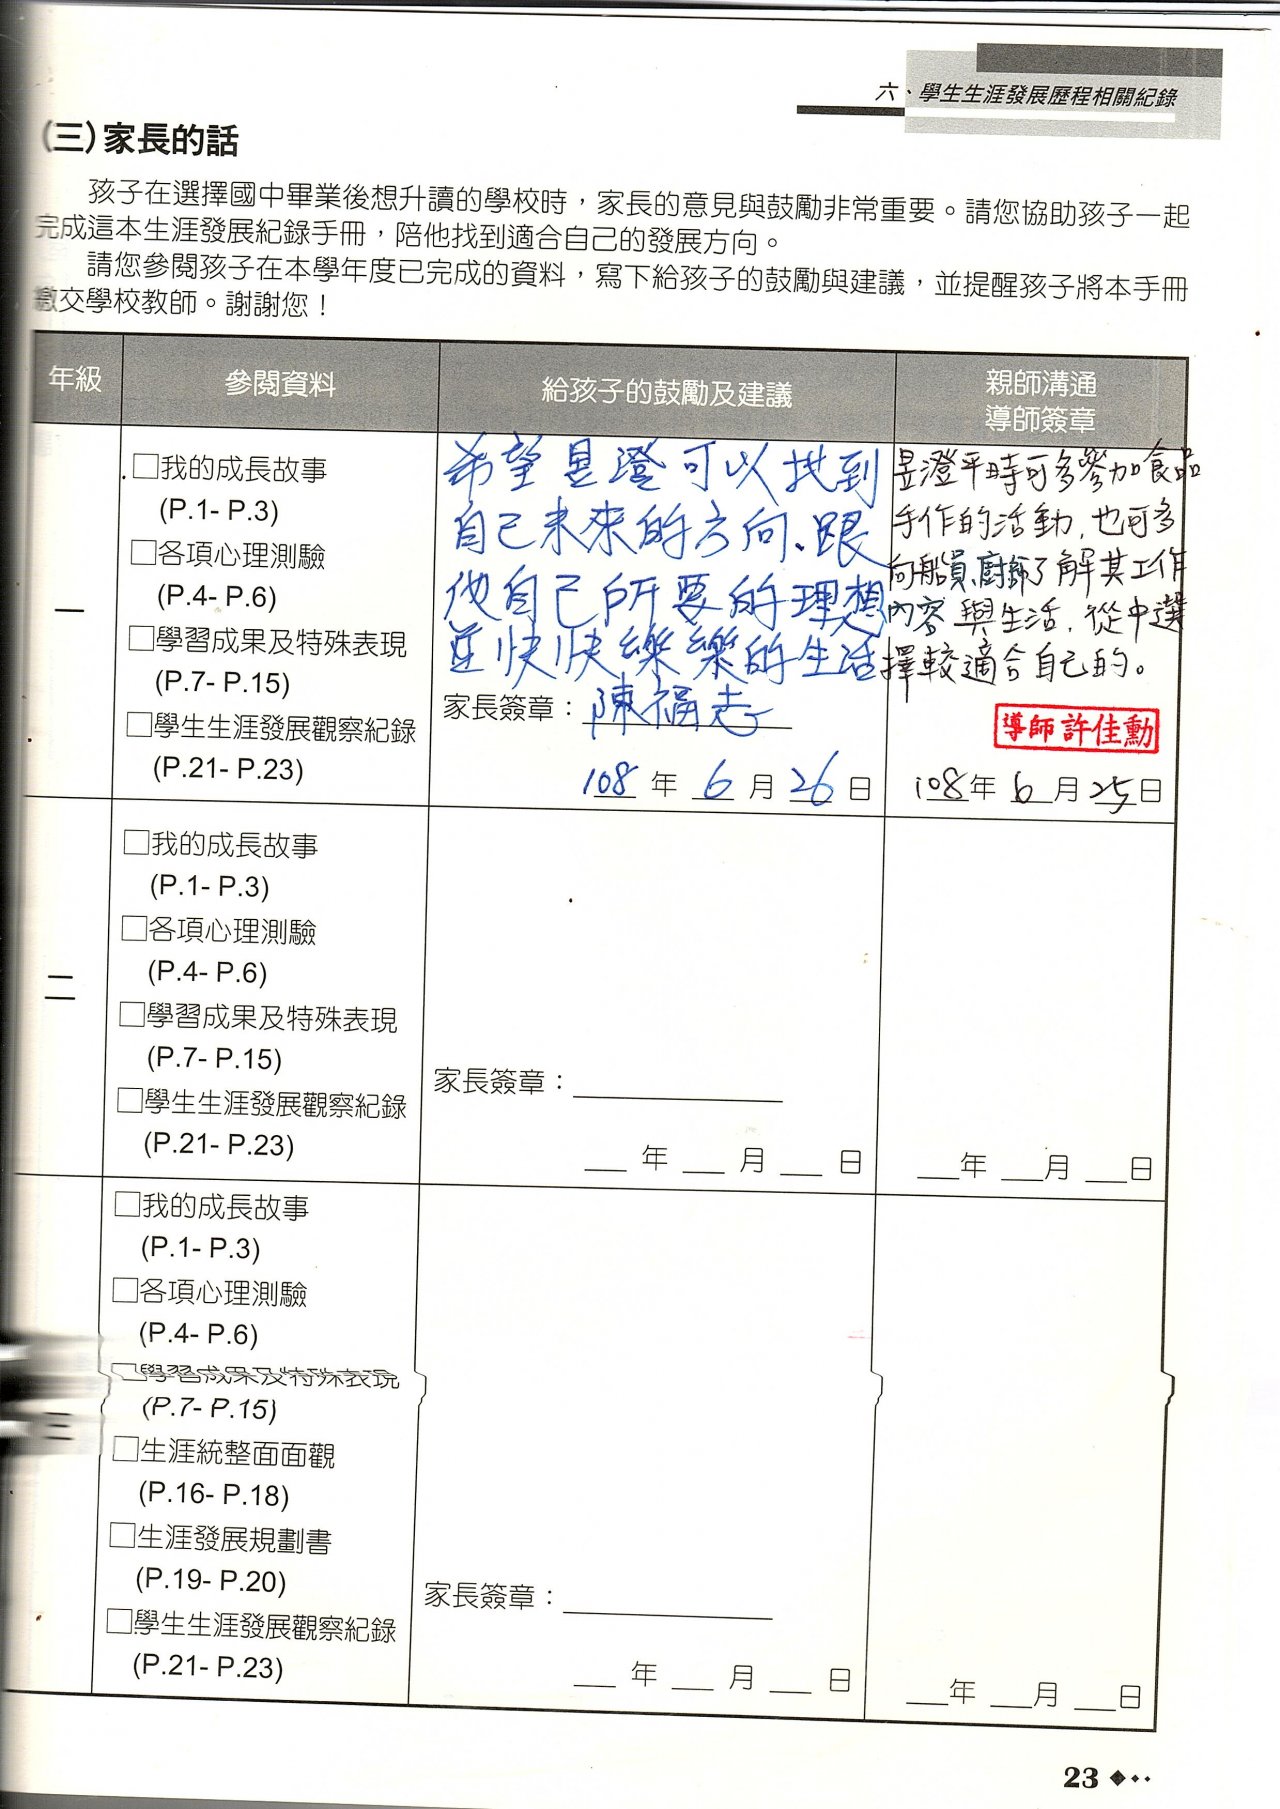 六、學生生涯發展歷程相關紀錄
(三)家長的話
孩子在選擇國中畢業後想升讀的學校時，家長的意見與鼓勵非常重要。請您協助孩子一起
完成這本生涯發展紀錄手冊，陪他找到適合自己的發展方向。
請您參閱孩子在本學年度已完成的資料，寫下給孩子的鼓勵與建議，並提醒孩子將本手冊
繳交學校教師。謝謝您！
年級
參閱資料
給孩子的鼓勵及建議
親師溝通
導師簽章
一
□我的成長故事
(P.1- P.3)
□各項心理測驗
(P.4- P.6)
□學習成果及特殊表現
(P.7- P.15)
□學生生涯發展觀察紀錄
(P.21- P.23)
希望昱澄可以找到
自己未來的方向、跟
他自己所要的理想
並快快樂樂的生活
家長簽章：陳福志
108 年 6 月 26 日
昱澄平時可多參加食品
手作的活動，也可多
向船員、廚師了解其工作
內容與生活，從中選
擇較適合自己的。
導師許佳勳
108年 6月 25日
二
□我的成長故事
(P.1- P.3)
□各項心理測驗
(P.4- P.6)
□學習成果及特殊表現
(P.7- P.15)
□學生生涯發展觀察紀錄
(P.21- P.23)
家長簽章：
年 月 日
年 月 日
三
□我的成長故事
(P.1- P.3)
□各項心理測驗
(P.4- P.6)
□學習成果及特殊表現
(P.7- P.15)
□生涯統整面面觀
(P.16- P.18)
□生涯發展規劃書
(P.19- P.20)
□學生生涯發展觀察紀錄
(P.21- P.23)
家長簽章：
年 月 日
年 月 日
23